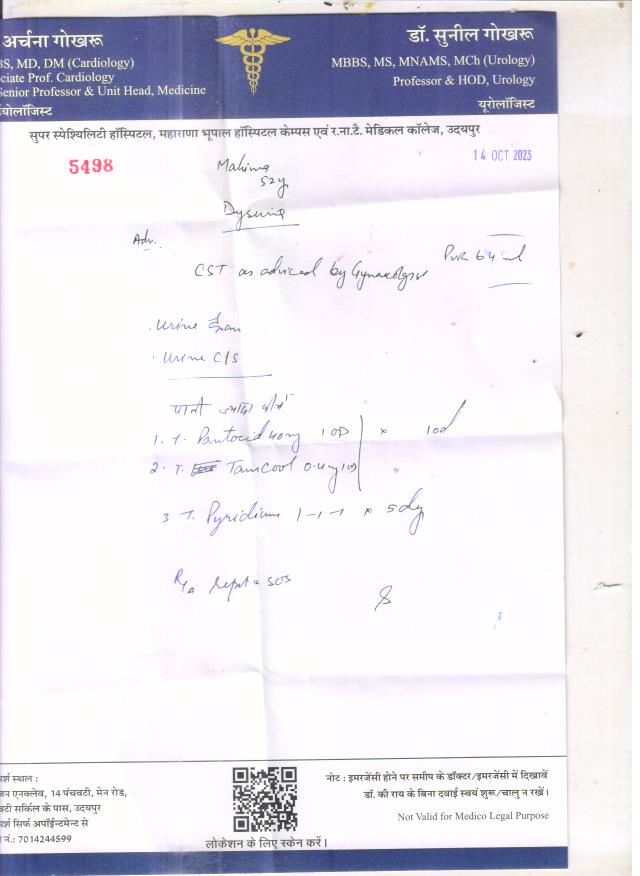 अर्चना गोखरू
BS, MD, DM (Cardiology)
ciate Prof. Cardiology
Senior Professor & Unit Head, Medicine
योलॉजिस्ट
डॉ. सुनील गोखरू
MBBS, MS, MNAMS, MCh (Urology)
Professor & HOD, Urology
यूरोलॉजिस्ट
सुपर स्पेश्यिलिटी हॉस्पिटल, महाराणा भूपाल हॉस्पिटल केम्पस एवं र.ना.टै. मेडिकल कॉलेज, उदयपुर
5498
14 OCT 2023
Mahima
52y
Dysuria
Adv.
PVR 64 ml
CST as adviced by Gynaecologist
. Urine Exam
. Urine C/S
पानी ज्यादा पीयें
1. T. Pantocid 40mg 1 OD x 10d
2. T. Tamcool 0.4mg 1OD
3 T. Pyridium 1-1-1 x 5 day
report SOS
र्श स्थल :
जन एनक्लेव, 14 पंचवटी, मेन रोड,
वटी सर्किल के पास, उदयपुर
र्श सिर्फ अपॉईन्टमेन्ट से
नं.: 7014244599
लोकेशन के लिए स्केन करें।
नोट : इमरजेंसी होने पर समीप के डॉक्टर/इमरजेंसी में दिखावें
डॉ. की राय के बिना दवाई स्वयं शुरू/चालु न रखें।
Not Valid for Medico Legal Purpose